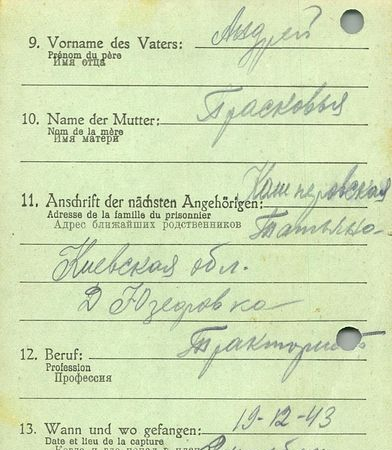 Андрей
9. Vorname des Vaters:
Prénom du père
Имя отца
Прасковья
10. Name der Mutter:
Nom de la mère
Имя матери
Кашперовская
11. Anschrift der nächsten Angehörigen:
Adresse de la famille du prisonnier
Татьяна
Адрес ближайших родственников
Киевская обл.
Д Юзефовка
Тракторист
12. Beruf:
Profession
Профессия
19-12-43
13. Wann und wo gefangen:
Date et lieu de la capture